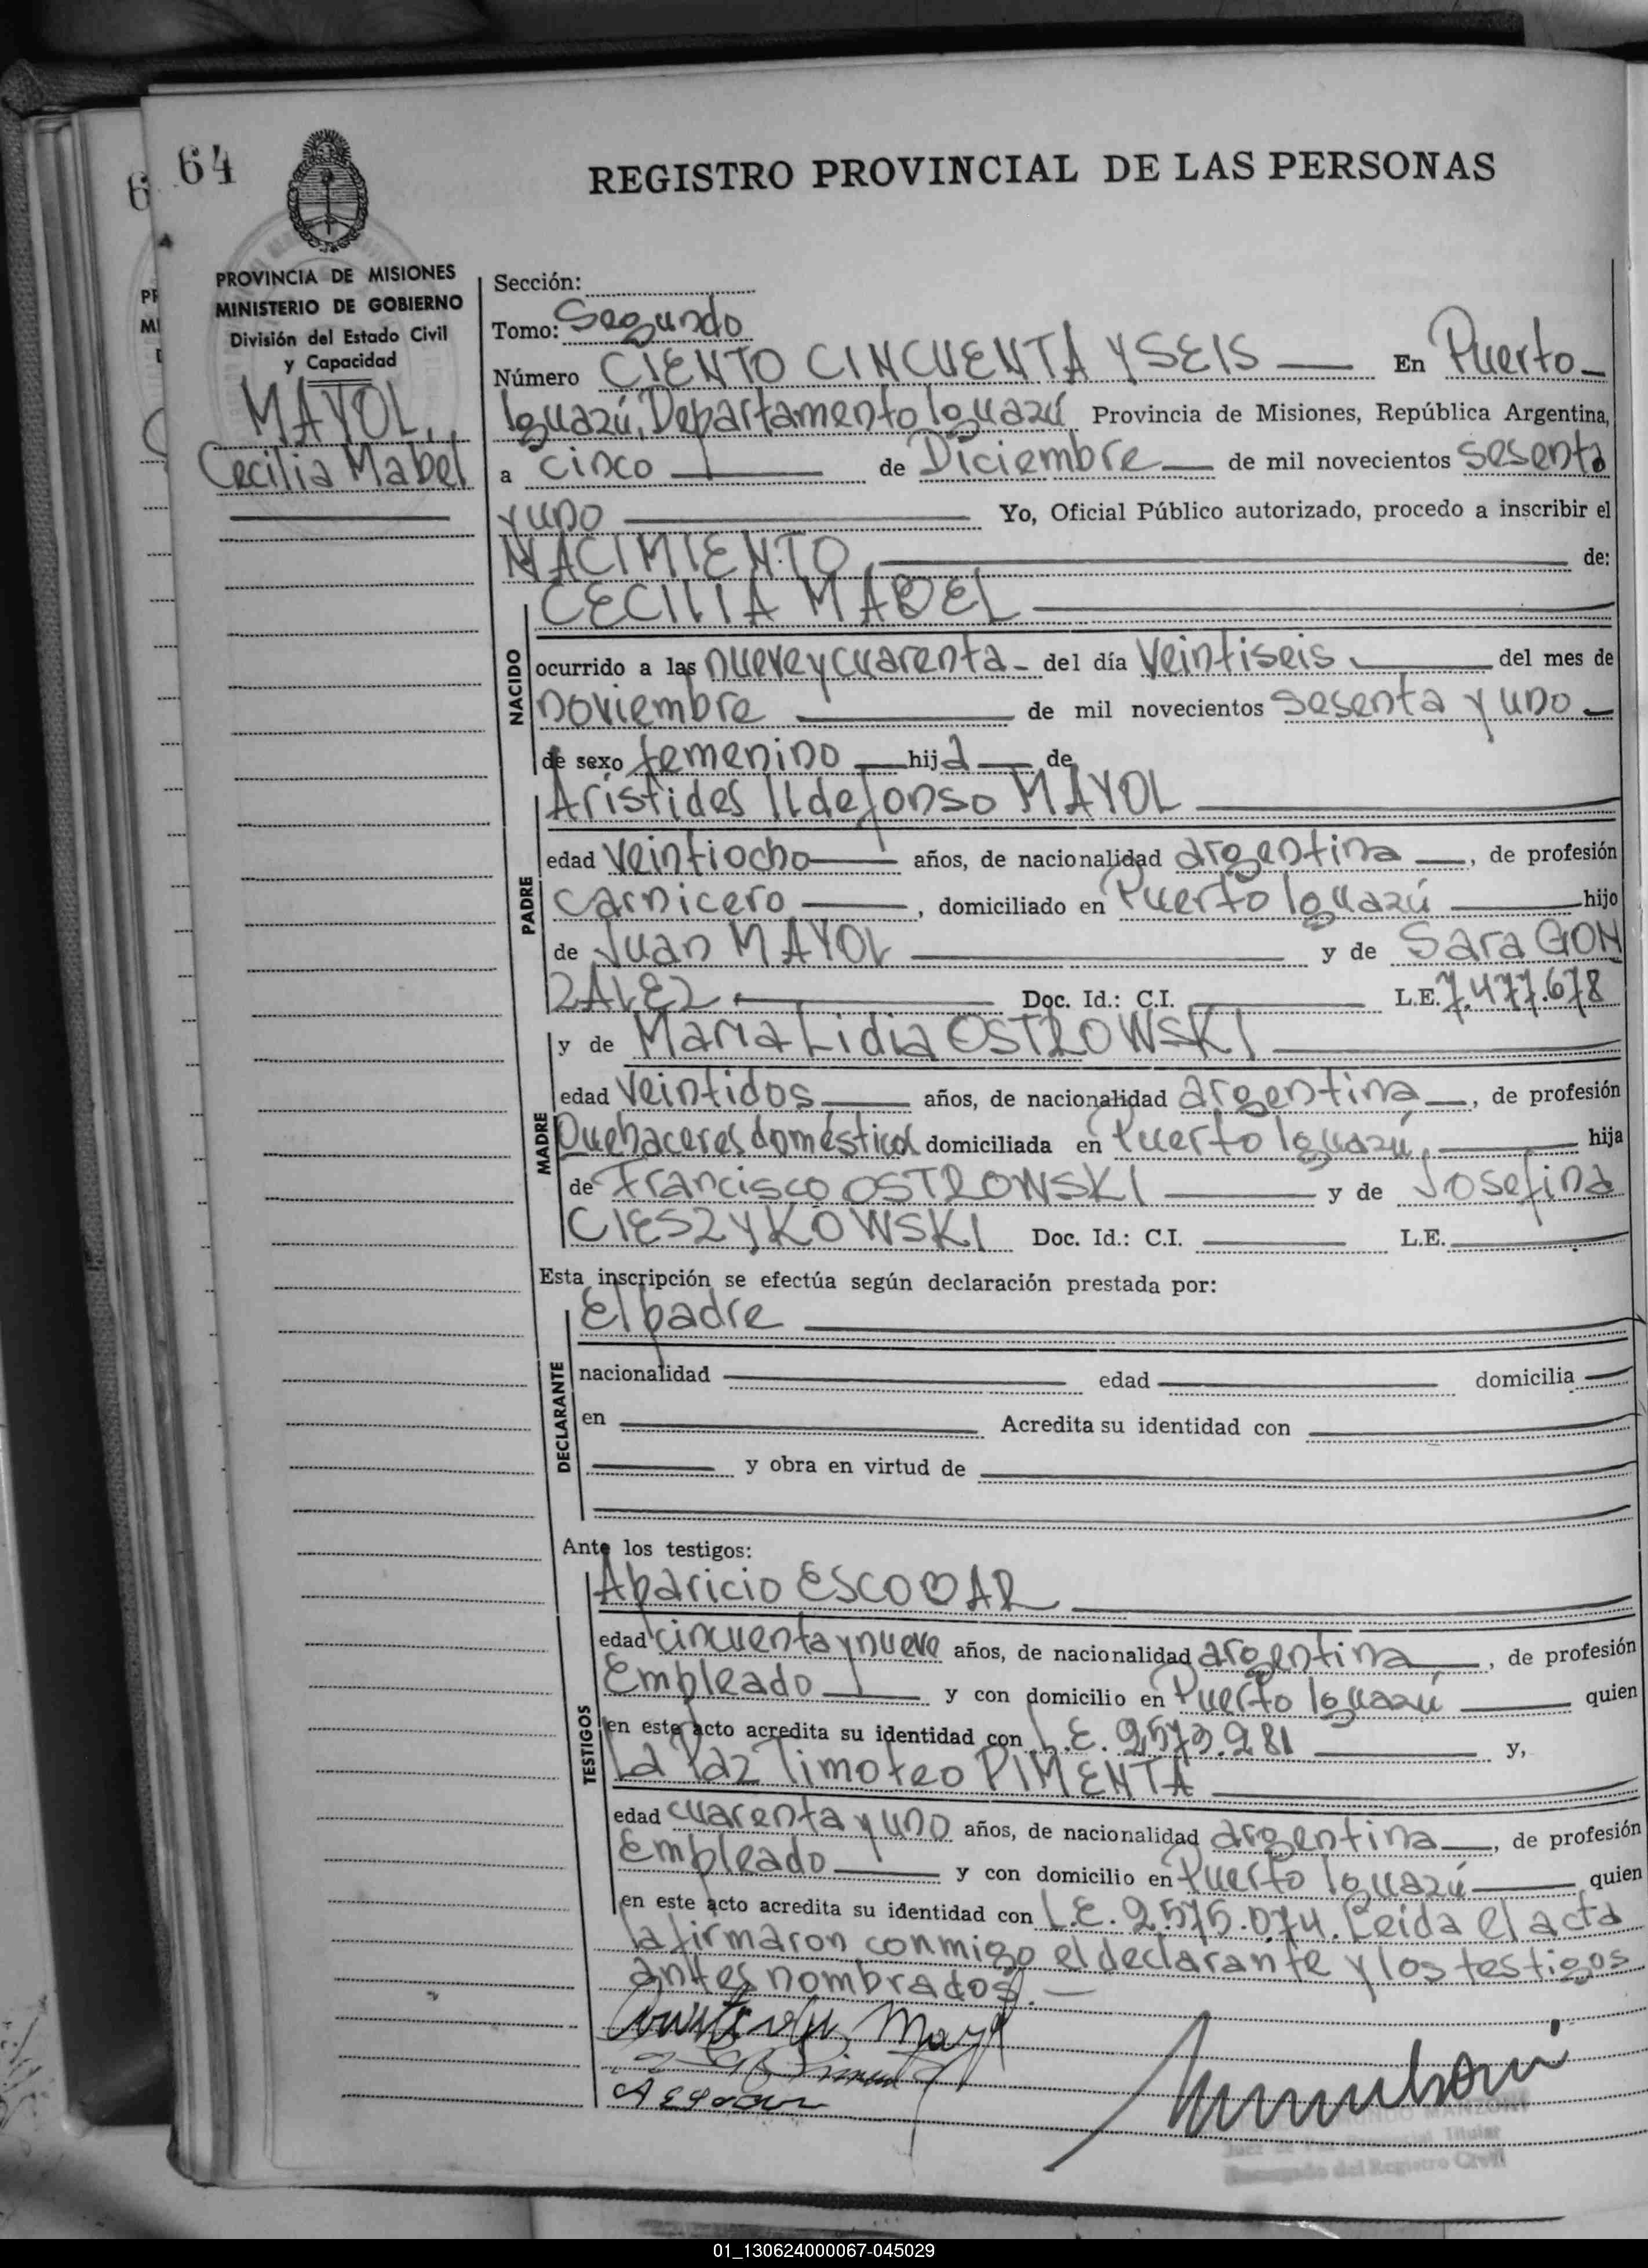 64
REGISTRO PROVINCIAL DE LAS PERSONAS
PROVINCIA DE MISIONES
MINISTERIO DE GOBIERNO
División del Estado Civil
y Capacidad
MAYOL,
Cecilia Mabel
Sección:
Tomo: Segundo
Número CIENTO CINCUENTA Y SEIS En Puerto
Iguazú, Departamento Iguazú Provincia de Misiones, República Argentina,
a cinco de Diciembre de mil novecientos sesenta
y uno Yo, Oficial Público autorizado, procedo a inscribir el
NACIMIENTO de:
CECILIA MABEL
NACIDO
ocurrido a las nueve y cuarenta del día veintiseis del mes de
noviembre de mil novecientos sesenta y uno
de sexo femenino hija de
Aristides Ildefonso MAYOL
PADRE
edad veintiocho años, de nacionalidad argentina, de profesión
carnicero, domiciliado en Puerto Iguazú hijo
de Juan MAYOL y de Sara GON
ZALEZ Doc. Id.: C.I. L.E. 7.477.678
y de Maria Lidia OSTROWSKI
MADRE
edad veintidos años, de nacionalidad argentina, de profesión
Quehaceres domésticos domiciliada en Puerto Iguazú, hija
de Francisco OSTROWSKI y de Josefina
CIESZYKOWSKI Doc. Id.: C.I. L.E.
Esta inscripción se efectúa según declaración prestada por:
El padre
DECLARANTE
nacionalidad edad domicilia
en Acredita su identidad con
y obra en virtud de
Ante los testigos:
Aparicio ESCOBAR
TESTIGOS
edad cincuenta y nueve años, de nacionalidad argentina, de profesión
Empleado y con domicilio en Puerto Iguazú quien
en este acto acredita su identidad con L.E. 2.573.281 y,
La Paz Timoteo PIMENTA
edad cuarenta y uno años, de nacionalidad argentina, de profesión
Empleado y con domicilio en Puerto Iguazú quien
en este acto acredita su identidad con L.E. 2.575.074. Leida el acta
la firmaron conmigo el declarante y los testigos
antes nombrados.
MUNDO MANZONI
Juez de Paz Titular
Encargado del Registro Civil
01_130624000067-045029